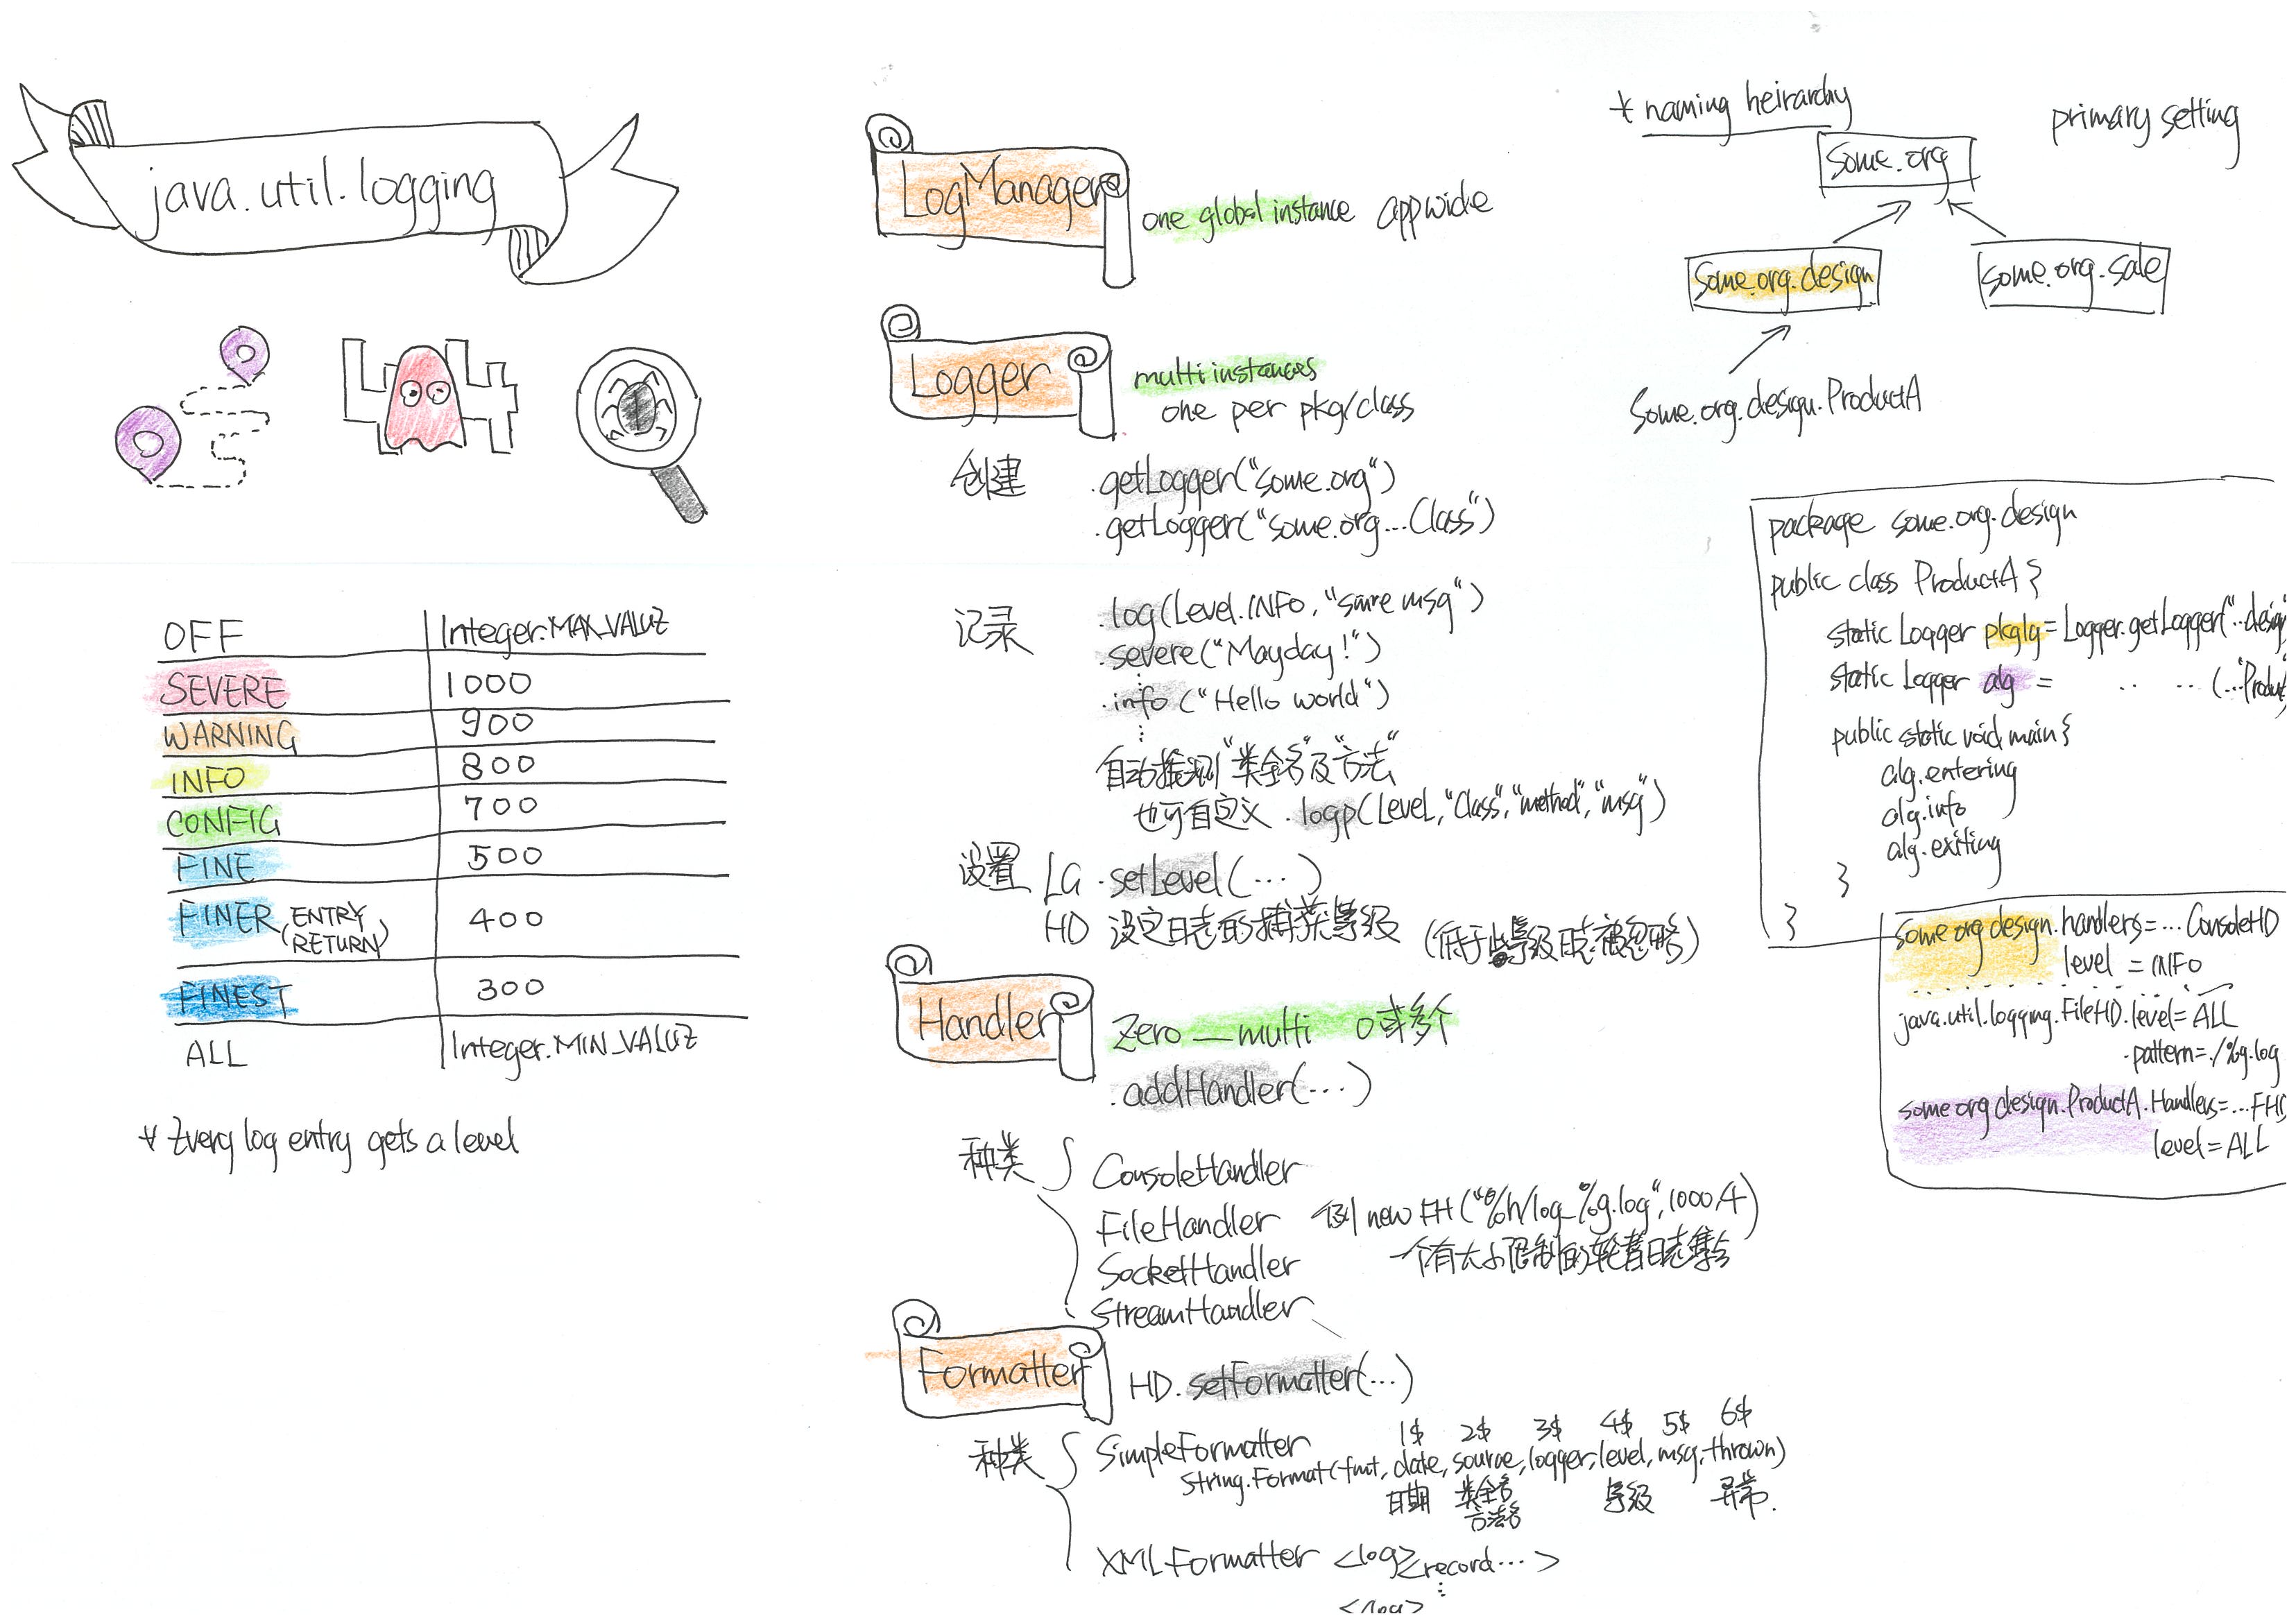 java.util.logging
OFF Integer.MAX_VALUE
SEVERE 1000
WARNING 900
INFO 800
CONFIG 700
FINE 500
FINER (ENTRY RETURN) 400
FINEST 300
ALL Integer.MIN_VALUE
* Every log entry gets a level
LogManager one global instance appwide
Logger multi instances
one per pkg/class
创建 .getLogger("some.org")
.getLogger("some.org...Class")
记录 .log(Level.INFO, "some msg")
.severe("Mayday!")
.info("Hello world")
自动推测"类全名"及"方法"
也可自定义 .logp(Level, "Class", "method", "msg")
设置 LG .setLevel(...)
HD 设定日志的捕获等级 (低于此等级日志被忽略)
Handler Zero __ multi 0或多个
.addHandler(...)
种类 ConsoleHandler
FileHandler 例 new FH("%h/log_%g.log", 1000, 4)
一个有大小限制的轮替日志集合
SocketHandler
StreamHandler
Formatter HD.setFormatter(...)
种类 SimpleFormatter 1$ 2$ 3$ 4$ 5$ 6$
String.Format(fmt, date, source, logger, level, msg, thrown)
日期 类全名 等级 异常.
方法名
XMLFormatter <log> <record...>
<log>
* naming heirarchy
primary setting
some.org
some.org.design some.org.sale
some.org.design.ProductA
package some.org.design
public class ProductA {
static Logger pkglg = Logger.getLogger("...design
static Logger alg = .. .. (..."Product
public static void main {
alg.entering
alg.info
alg.exiting
}
}
some.org.design.handlers=...ConsoleHD
level = INFO
java.util.logging.FileHD.level=ALL
.pattern=./%g.log
some.org.design.ProductA.Handlers=...FHD
level=ALL